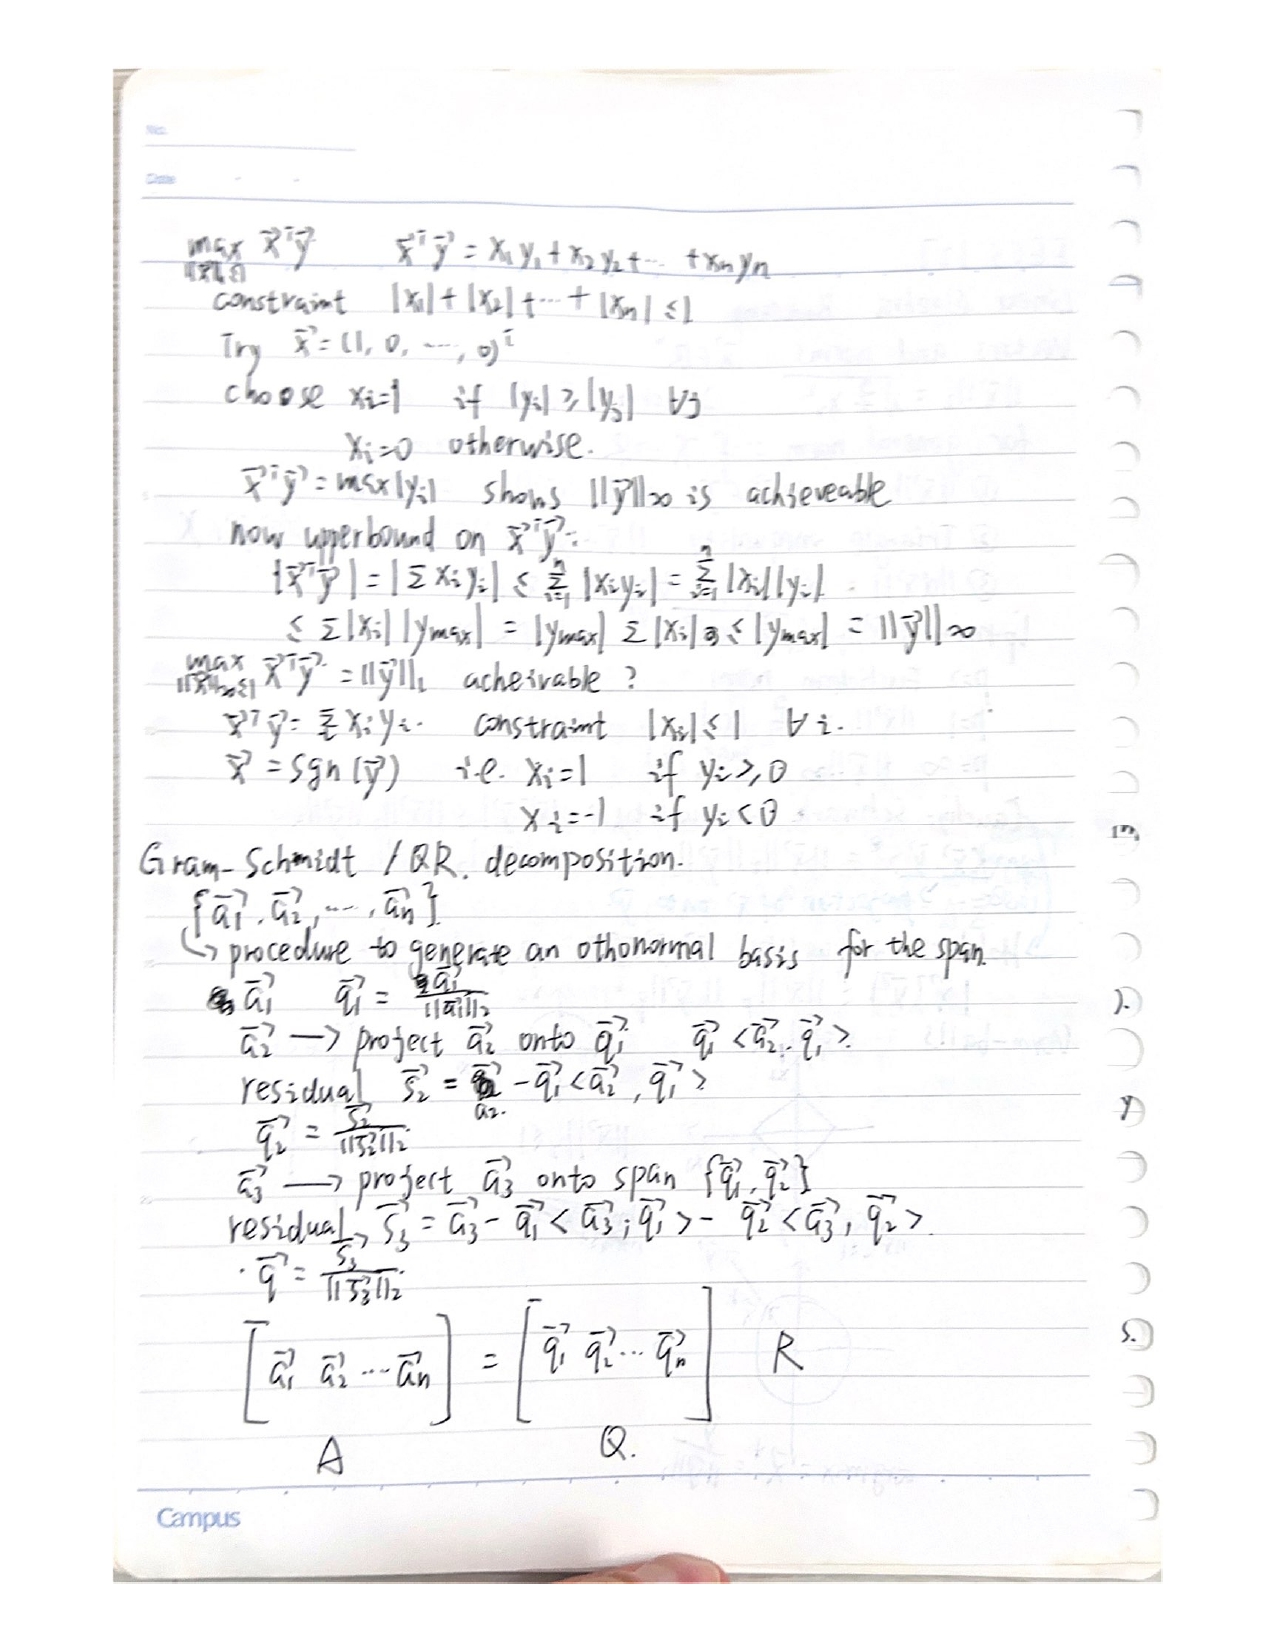 No.
Date
max x⃗ᵀy⃗   x⃗ᵀy⃗ = x₁y₁ + x₂y₂ + ··· + xₙyₙ
||x⃗||₁≤1
constraint |x₁| + |x₂| + ··· + |xₙ| ≤ 1
Try x⃗ = (1, 0, ···, 0)ᵀ
choose xᵢ=1 if |yᵢ| ≥ |yⱼ| ∀j
xᵢ=0 otherwise.
x⃗ᵀy⃗ = max|yᵢ| shows ||y⃗||∞ is achieveable
now upperbound on x⃗ᵀy⃗:
|x⃗ᵀy⃗| = |Σ xᵢyᵢ| ≤ Σⁿᵢ₌₁ |xᵢyᵢ| = Σⁿᵢ₌₁ |xᵢ||yᵢ|
≤ Σ|xᵢ| |ymax| = |ymax| Σ|xᵢ| ≤ |ymax| = ||y⃗||∞
max x⃗ᵀy⃗ = ||y⃗||₁ acheivable ?
||x⃗||∞≤1
x⃗ᵀy⃗ = Σᵢ xᵢyᵢ. constraint |xᵢ| ≤ 1 ∀i.
x⃗ = sgn(y⃗) i.e. xᵢ=1 if yᵢ≥0
xᵢ=-1 if yᵢ<0
Gram-Schmidt / QR. decomposition.
{a⃗₁, a⃗₂, ···, a⃗ₙ}
↳ procedure to generate an othonormal basis for the span.
a⃗₁   q⃗₁ = a⃗₁ / ||a⃗₁||₂
a⃗₂ → project a⃗₂ onto q⃗₁   q⃗₁ <a⃗₂, q⃗₁>.
residual s⃗₂ = a⃗₂ - q⃗₁<a⃗₂, q⃗₁>
q⃗₂ = s⃗₂ / ||s⃗₂||₂.
a⃗₃ → project a⃗₃ onto span {q⃗₁, q⃗₂}
residual, s⃗₃ = a⃗₃ - q⃗₁ <a⃗₃, q⃗₁> - q⃗₂ <a⃗₃, q⃗₂>.
q⃗ = s⃗₃ / ||s⃗₃||₂.
[a⃗₁ a⃗₂ ··· a⃗ₙ] = [q⃗₁ q⃗₂ ··· q⃗ₙ] R
A   Q.
Campus